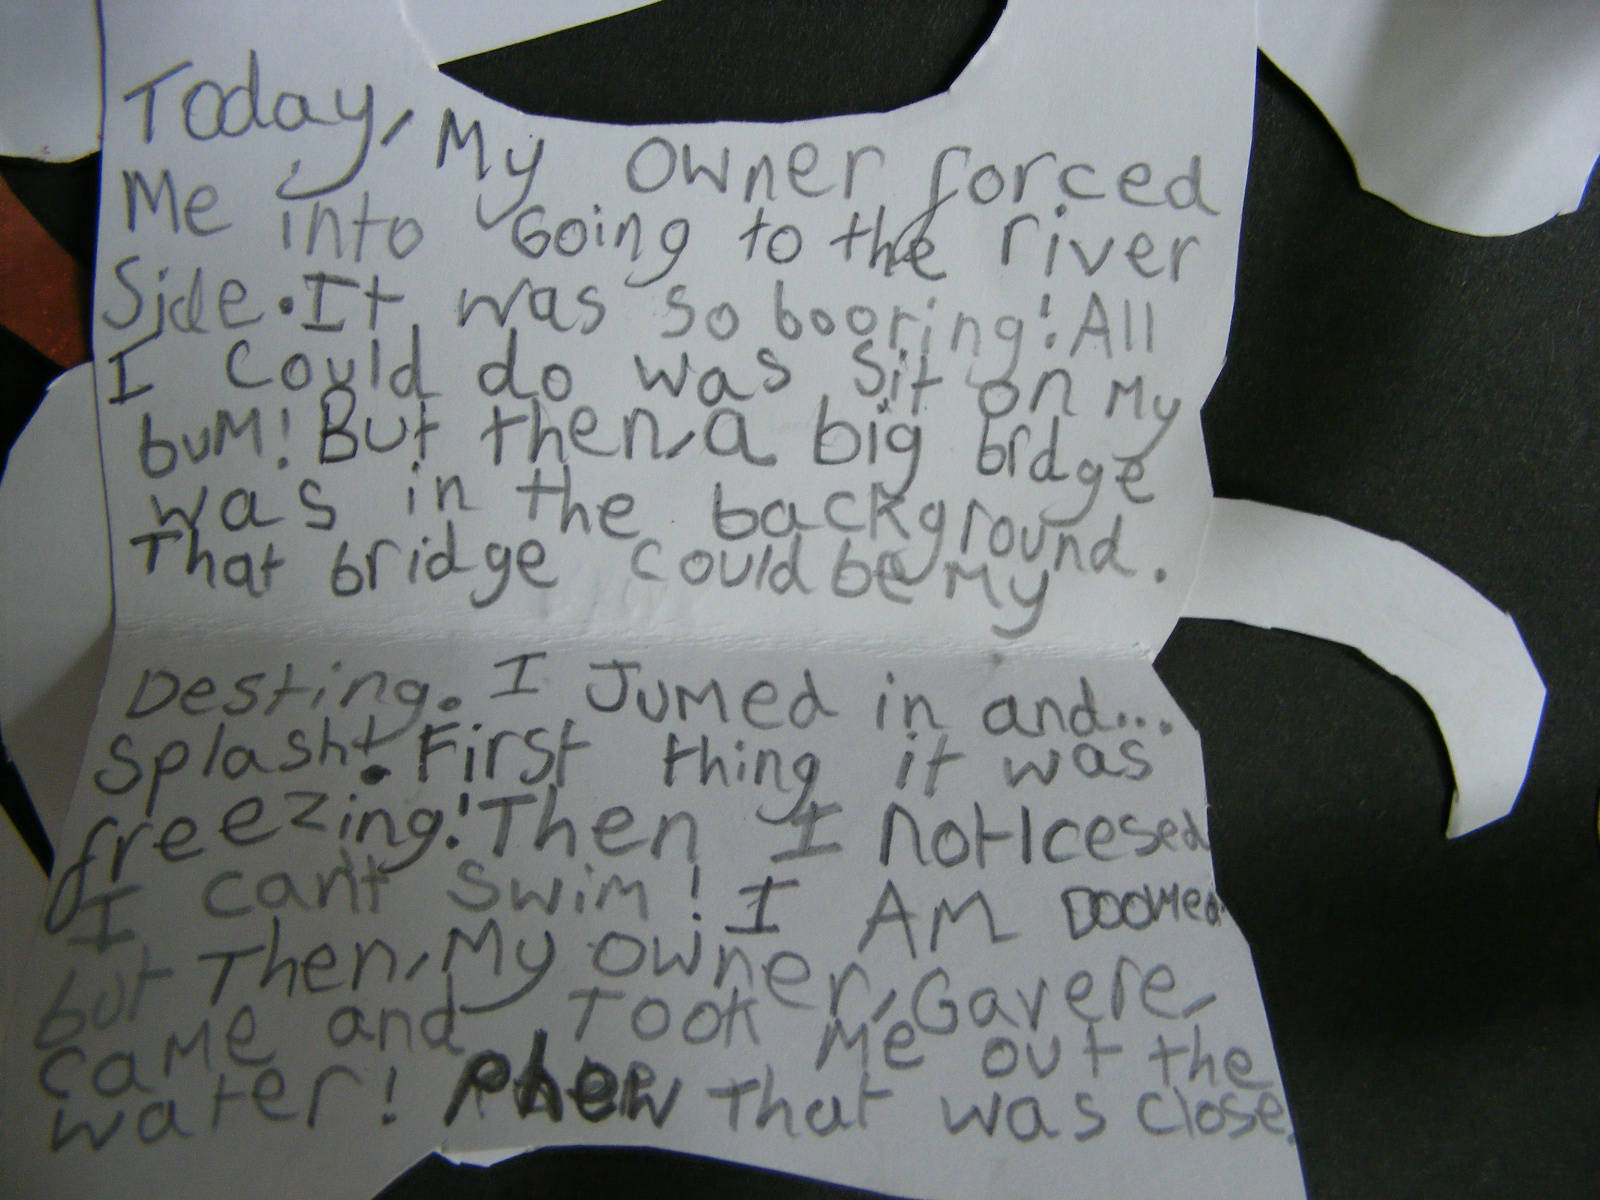 Today, My owner forced
Me into Going to the river
Side. It was so booring! All
I could do was sit on My
buM! But then, a big bridge
was in the background.
That bridge could be My
Desting. I Jumed in and...
splash!. First thing it was
freezing! Then I noticesed
I can't swim! I AM DooMed.
but Then, My owner, Gavere,
came and Took Me out the
water! phew That was close.